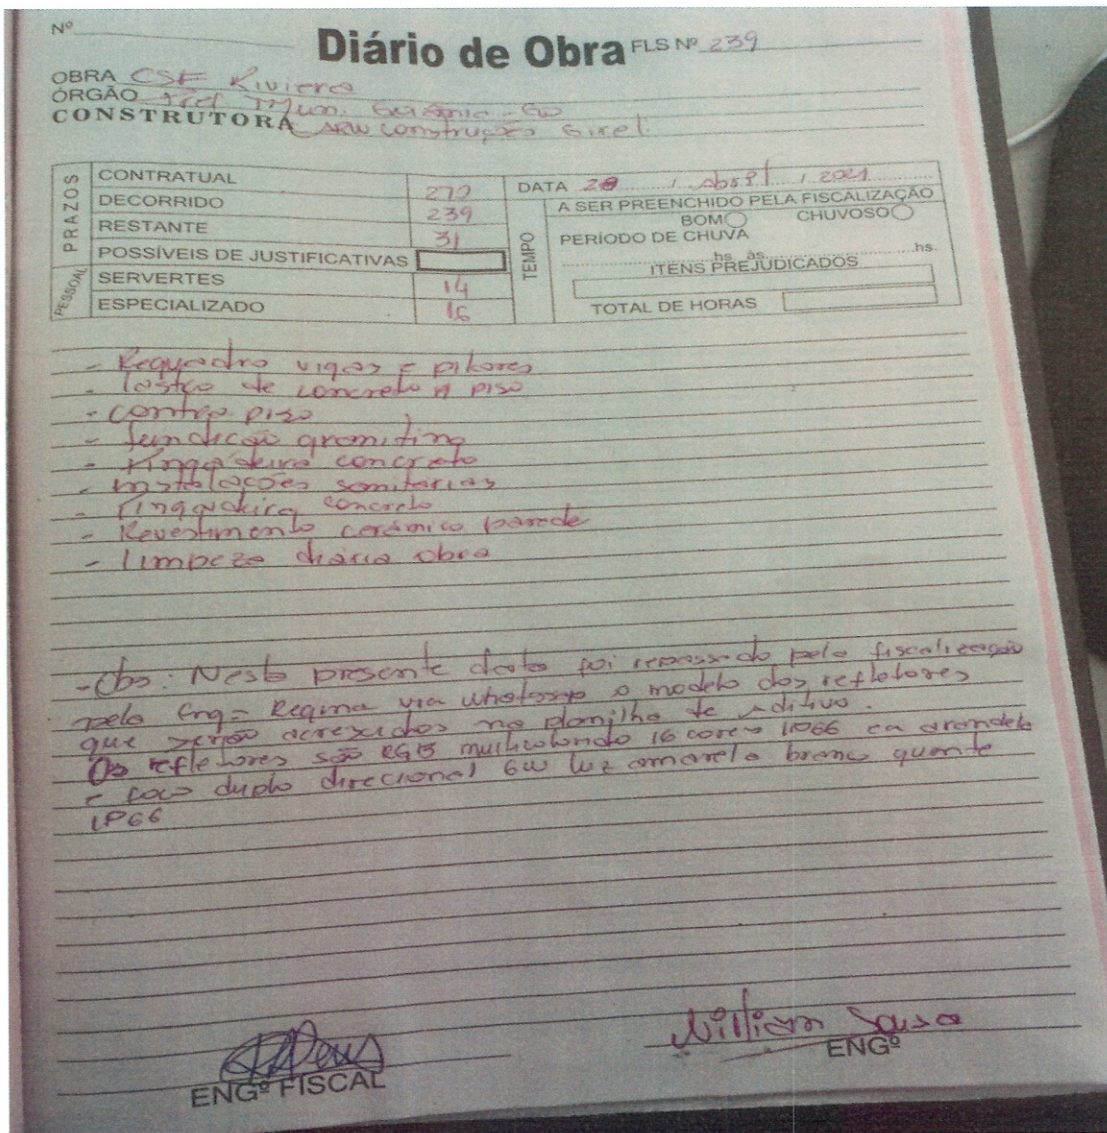 Nº
Diário de Obra FLS Nº 239
OBRA CSF Riviera
ÓRGÃO Pref Mun. Goiânia - GO
CONSTRUTORA ARW Construções Eirel.
PRAZOS
CONTRATUAL 270
DECORRIDO 239
RESTANTE 31
POSSÍVEIS DE JUSTIFICATIVAS
PESSOAL
SERVERTES 14
ESPECIALIZADO 16
DATA 20 / Abril / 2021
TEMPO
A SER PREENCHIDO PELA FISCALIZAÇÃO
BOM CHUVOSO
PERÍODO DE CHUVA
hs às hs.
ITENS PREJUDICADOS
TOTAL DE HORAS
- Requadro vigas e pilares
- lastro de concreto p/ piso
- contra piso
- fundição granitina
- Pingadeira concreto
- instalações sanitarias
- Pingadeira concreto
- Revestimento cerâmico parede
- limpeza diária obra
- Obs: Nesta presente data foi repassado pela fiscalização
pela Engª Regina via whatssap o modelo dos refletores
que serão acrescidos na planilha de aditivo.
Os refletores são RGB multicolorido 16 cores IP66 ea arandela
- foco duplo direcional 6w luz amarela branco quente
IP66
ENGº FISCAL
Willian Sousa
ENGº